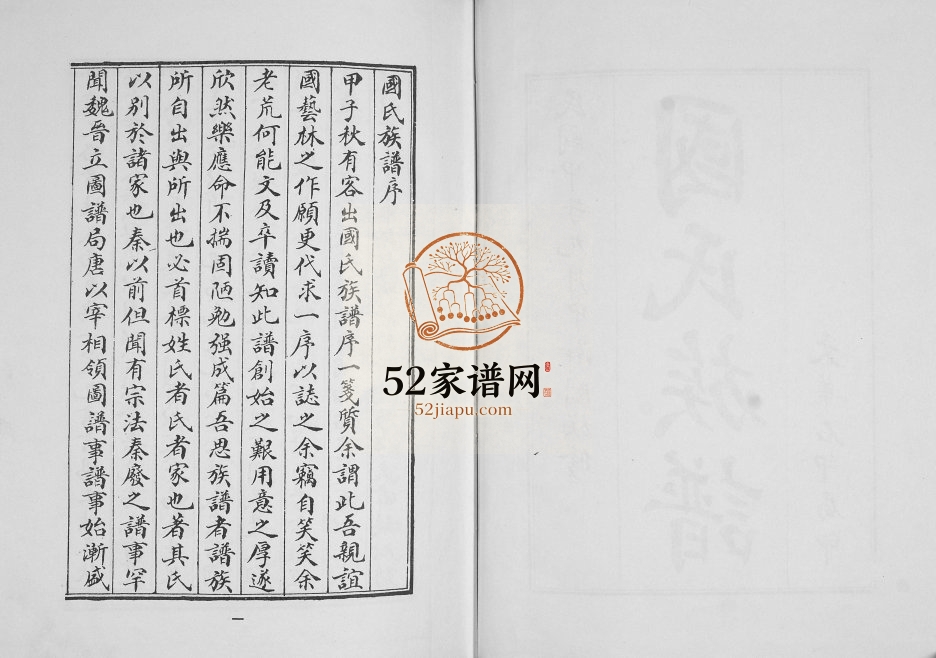 國氏族譜序
甲子秋有客出國氏族譜序一箋質余謂此吾親誼
國藝林之作願更代求一序以誌之余竊自笑笑余
老荒何能文及卒讀知此譜創始之艱用意之厚遂
欣然樂應命不揣固陋勉强成篇吾思族譜者譜族
所自出與所出也必首標姓氏者氏者家也著其氏
以别於諸家也秦以前但聞有宗法秦廢之譜事罕
聞魏晉立圖譜局唐以宰相領圖譜事譜事始漸盛
一
國氏族譜
52家谱网
52jiapu.com